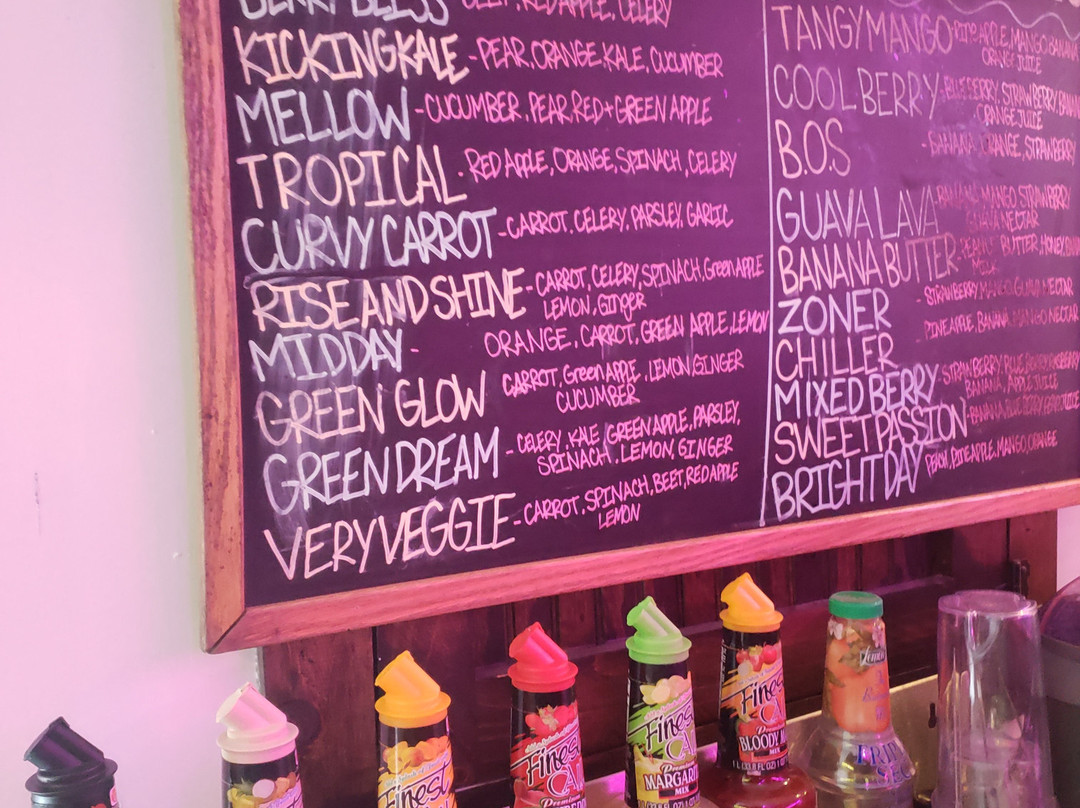 BERRY BLISS BEET, RED APPLE, CELERY
KICKING KALE - PEAR, ORANGE, KALE, CUCUMBER
MELLOW - CUCUMBER, PEAR, RED + GREEN APPLE
TROPICAL - RED APPLE, ORANGE, SPINACH, CELERY
CURVY CARROT - CARROT, CELERY, PARSLEY, GARLIC
RISE AND SHINE - CARROT, CELERY, SPINACH, Green APPLE
LEMON, GINGER
MIDDAY - ORANGE, CARROT, GREEN APPLE, LEMON
GREEN GLOW CARROT, Green APPLE, LEMON, GINGER
CUCUMBER
GREEN DREAM - CELERY, KALE, GREEN APPLE, PARSLEY,
SPINACH, LEMON, GINGER
VERY VEGGIE - CARROT, SPINACH, BEET, RED APPLE
LEMON
TANGY MANGO - PINE APPLE, MANGO, BANANA
ORANGE JUICE
COOL BERRY - BLUEBERRY, STRAWBERRY, BANANA
ORANGE JUICE
B.O.S - BANANA, ORANGE, STRAWBERRY
GUAVA LAVA - BANANA, MANGO, STRAWBERRY
GUAVA NECTAR
BANANA BUTTER - PEANUT BUTTER, HONEY, BANA
MILK
ZONER - STRAWBERRY, MANGO, GUAVA NECTAR
CHILLER PINEAPPLE, BANANA, MANGO NECTAR
MIXED BERRY STRAWBERRY, BLUEBERRY,
BANANA, APPLE JUICE
SWEET PASSION - BANANA, BLUEBERRY,
BRIGHT DAY PEACH, PINEAPPLE, MANGO, ORANGE
Finest
Finest
CALL
Premium
Finest
CALL
Premium
MARGARITA
MIX
Finest
CALL
Premium
BLOODY MARY
MIX
1 L (33.8 FL OZ)
TRIPLE
SEC